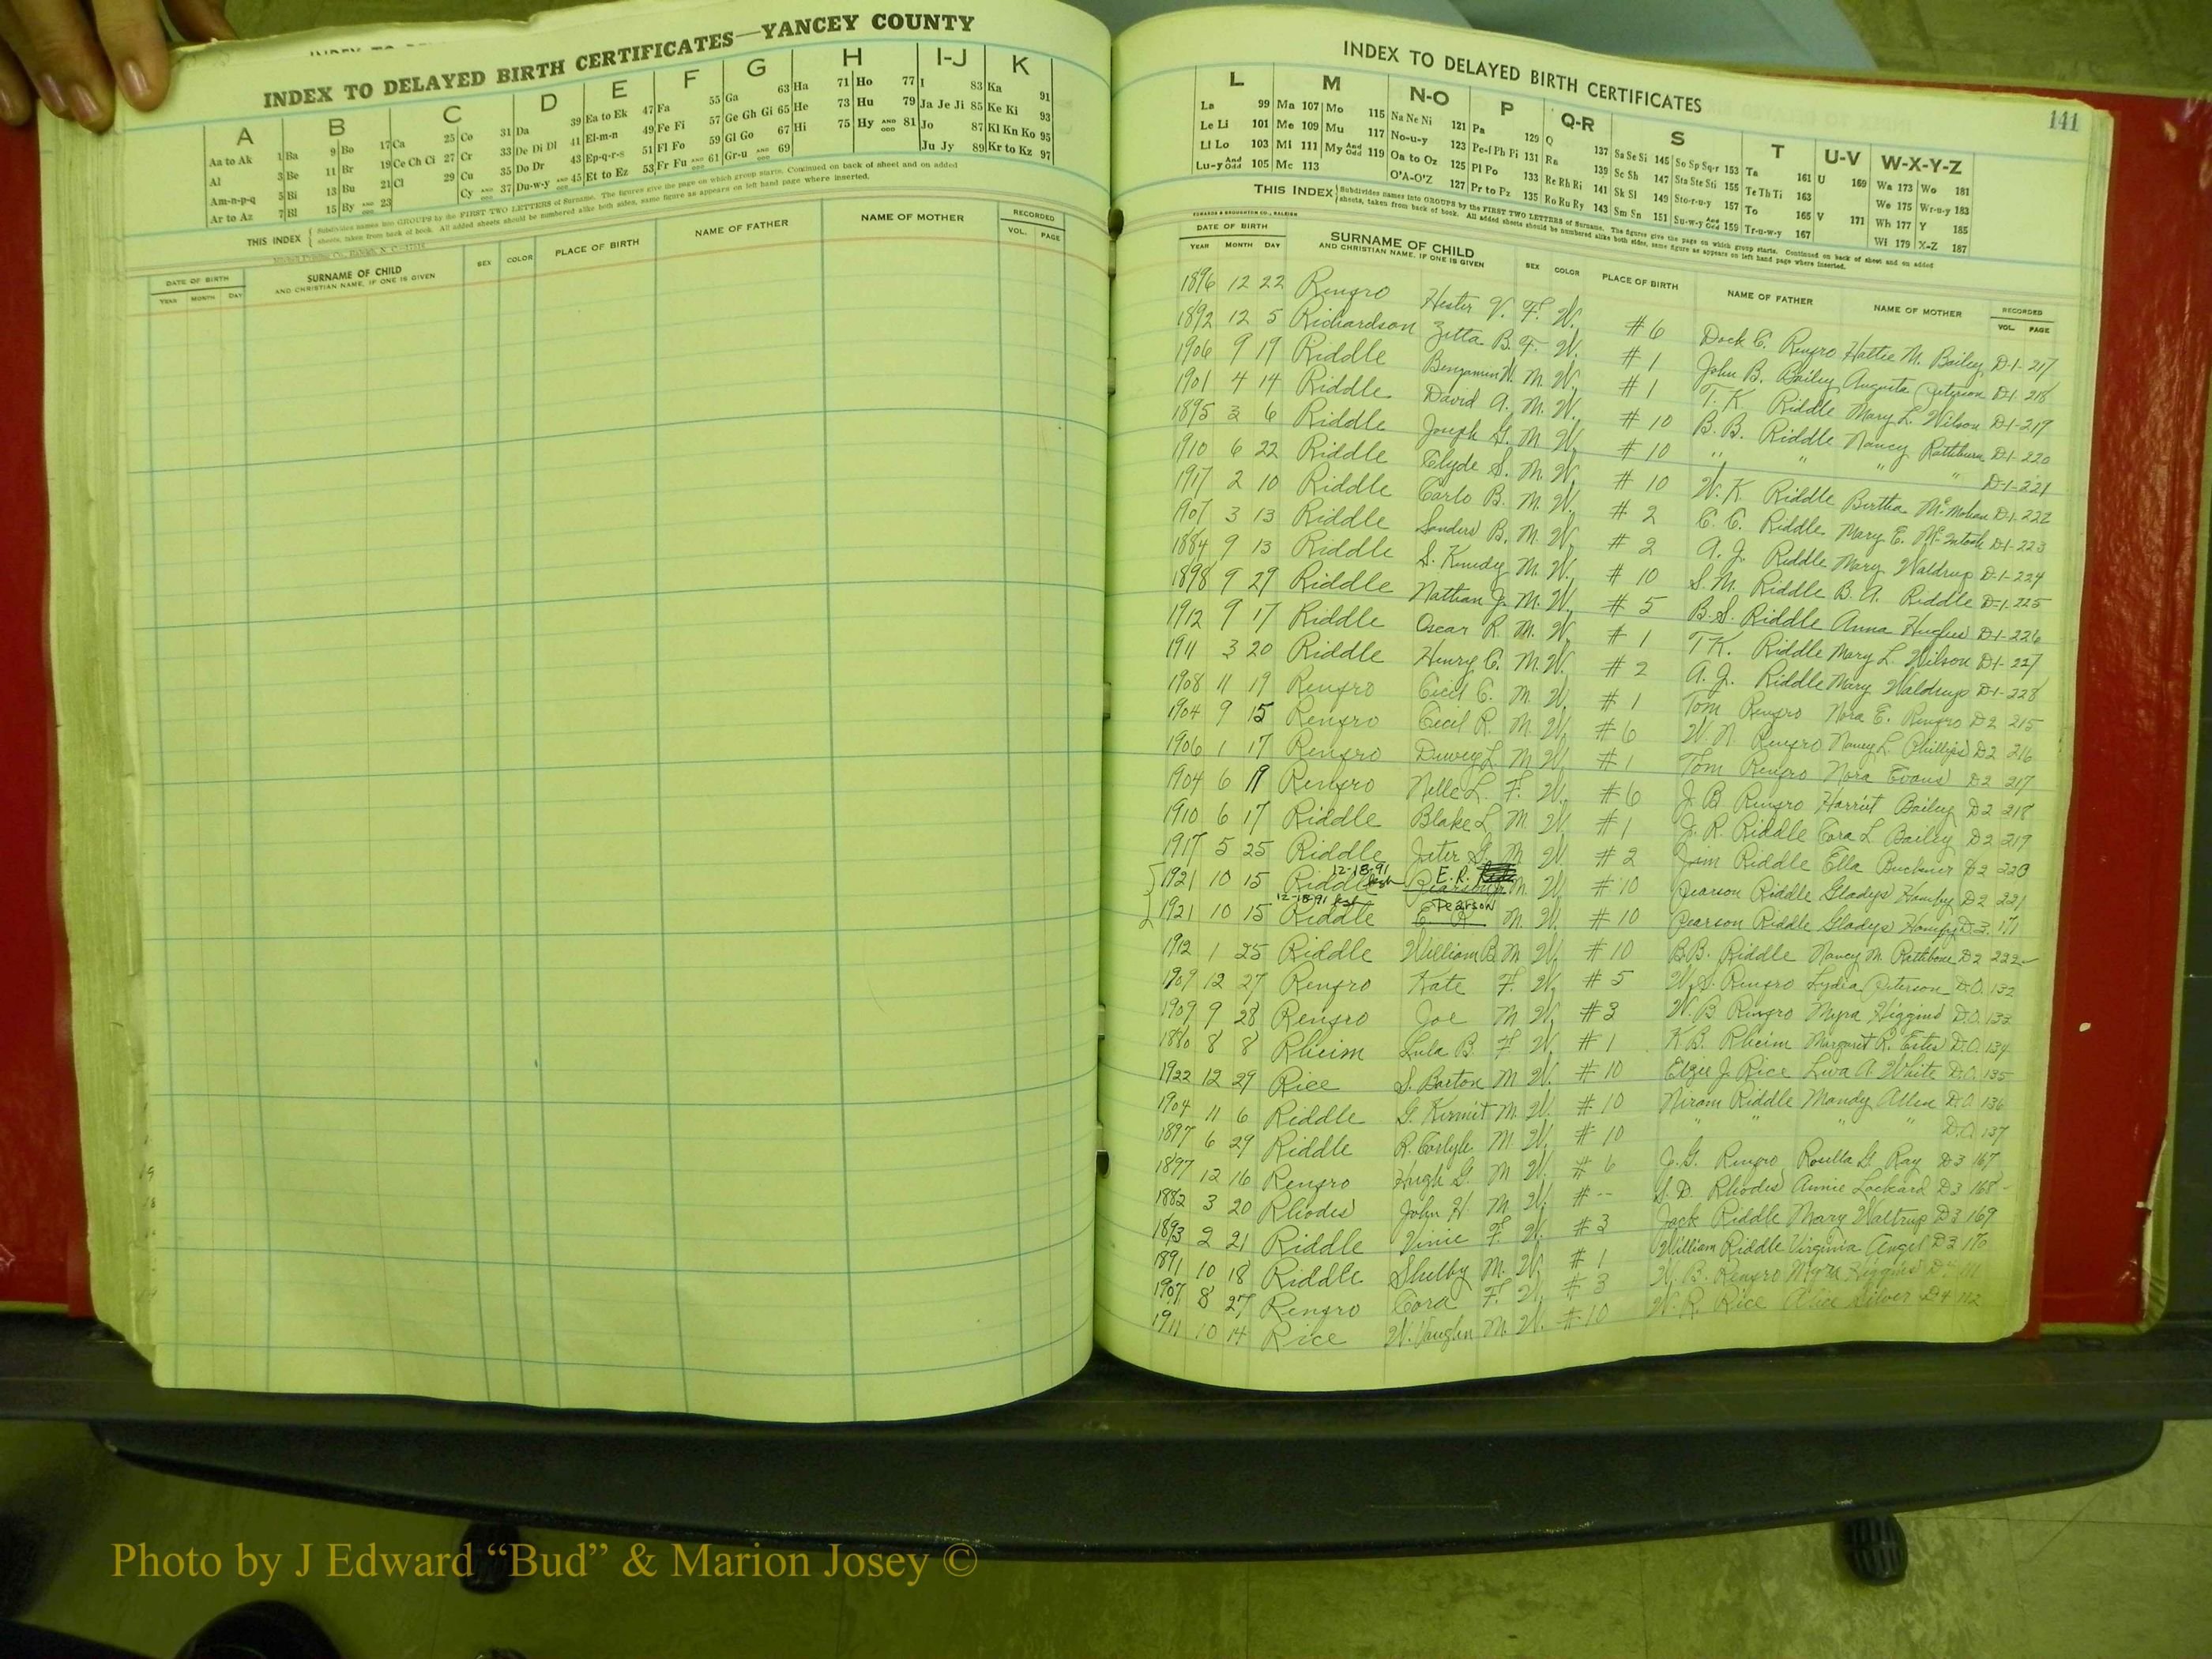 INDEX TO DELAYED BIRTH CERTIFICATES—YANCEY COUNTY
A B C D E F G H I-J K
Aa to Ak 1 Ba 9 Bo 17 Ca 25 Co 31 Da 39 Ea to Ek 47 Fa 55 Ga 63 Ha 71 Ho 77 I 83 Ka 91
Al 3 Be 11 Br 19 Ce Ch Ci 27 Cr 33 De Di Dl 41 El-m-n 49 Fe Fi 57 Ge Gh Gi 65 He 73 Hu 79 Ja Je Ji 85 Ke Ki 93
Am-n-p-q 5 Bi 13 Bu 21 Cl 29 Cu 35 Do Dr 43 Ep-q-r-s 51 Fl Fo 59 Gl Go 67 Hi 75 Hy AND ODD 81 Jo 87 Kl Kn Ko 95
Ar to Az 7 Bl 15 By AND ODD 23 Cy AND ODD 37 Du-w-y AND ODD 45 Et to Ez 53 Fr Fu AND ODD 61 Gr-u AND ODD 69 Ju Jy 89 Kr to Kz 97
THIS INDEX { Subdivides names into GROUPS by the FIRST TWO LETTERS of Surname. The figures give the page on which group starts. Continued on back of sheet and on added
sheets, taken from back of book. All added sheets should be numbered alike both sides, same figure as appears on left hand page where inserted.
DATE OF BIRTH SURNAME OF CHILD SEX COLOR PLACE OF BIRTH NAME OF FATHER NAME OF MOTHER RECORDED
YEAR MONTH DAY AND CHRISTIAN NAME, IF ONE IS GIVEN VOL. PAGE
INDEX TO DELAYED BIRTH CERTIFICATES
141
L M N-O P Q-R S T U-V W-X-Y-Z
La 99 Ma 107 Mo 115 Na Ne Ni 121 Pa 129 Q 137 Sa Se Si 145 So Sp Sq-r 153 Ta 161 U 169 Wa 173 Wo 181
Le Li 101 Me 109 Mu 117 No-u-y 123 Pe-f Ph Pi 131 Ra 139 Sc Sh 147 Sta Ste Sti 155 Te Th Ti 163 We 175 Wr-u-y 183
Ll Lo 103 Mi 111 My And Odd 119 Oa to Oz 125 Pl Po 133 Re Rh Ri 141 Sk Sl 149 Sto-r-u-y 157 To 165 V 171 Wh 177 Y 185
Lu-y And Odd 105 Mc 113 O'A-O'Z 127 Pr to Pz 135 Ro Ru Ry 143 Sm Sn 151 Su-w-y And Odd 159 Tr-u-w-y 167 Wi 179 X-Z 187
THIS INDEX { Subdivides names into GROUPS by the FIRST TWO LETTERS of Surname. The figures give the page on which group starts. Continued on back of sheet and on added
sheets, taken from back of book. All added sheets should be numbered alike both sides, same figure as appears on left hand page where inserted.
EDWARDS & BROUGHTON CO., RALEIGH
DATE OF BIRTH SURNAME OF CHILD SEX COLOR PLACE OF BIRTH NAME OF FATHER NAME OF MOTHER RECORDED
YEAR MONTH DAY AND CHRISTIAN NAME, IF ONE IS GIVEN VOL. PAGE
1896 12 22 Renfro Hester V. F. W. #6 Dock C. Renfro Hattie M. Bailey D-1-217
1892 12 5 Richardson Zetta B. F. W. #1 John B. Bailey Augusta Peterson D-1-218
1906 9 19 Riddle Benjamin W. M. W. #1 T. K Riddle Mary L. Wilson D-1-219
1901 4 14 Riddle David A. M. W. #10 B. B. Riddle Nancy Rathburn D-1-220
1895 3 6 Riddle Joseph G. M W. #10 " " " " D-1-221
1910 6 22 Riddle Clyde S. M. W. #10 W. K Riddle Bertha McMahan D-1-222
1917 2 10 Riddle Carlo B. M. W. #2 C. C. Riddle Mary E. McIntosh D-1-223
1907 3 13 Riddle Sanders B. M. W. #2 A. J. Riddle Mary Waldrup D-1-224
1884 9 13 Riddle S. M. W. #10 S. M. Riddle B. A. Riddle D-1-225
1898 9 29 Riddle Nathan J. M. W. #5 B. S. Riddle Anna Hughes D-1-226
1912 9 17 Riddle Oscar R. M. W. #1 T K. Riddle Mary L. Wilson D-1-227
1911 3 20 Riddle Henry C. M. W. #2 A. J. Riddle Mary Waldrup D-1-228
1908 11 19 Renfro Cecil C. M. W. #1 Tom Renfro Nora E. Renfro D2 215
1904 9 15 Renfro Cecil R. M. W. #6 W. N. Renfro Nancy L. Phillips D2 216
1906 1 17 Renfro Dewey L M W. #1 Tom Renfro Nora Evans D2 217
1904 6 19 Renfro Nelle L. F. W. #6 J. B Renfro Harriet Bailey D2 218
1910 6 17 Riddle Blake L M. W. #1 J. R. Riddle Cora L Bailey D2 219
1917 5 25 Riddle Jeter G. M W. #2 Jim Riddle Ella Buckner D2 220
12-18-91 E. R.
1921 10 15 Riddle Pearson M. W. #10 Pearson Riddle Gladys D2 221
12-18-91 Pearson
1921 10 15 Riddle E R M. W. #10 Pearson Riddle Gladys D.3. 171
1912 1 25 Riddle William B M W. #10 B.B. Riddle Nancy M. Rathbone D2 222
1909 12 27 Renfro Kate F. W. #5 W. S. Renfro Lydia Peterson D.O. 132
1909 9 28 Renfro Joe M W. #3 W. B Renfro Myra Higgins D.O. 133
1880 8 8 Rheim Lula B. F W. #1 K B. Rheim Margaret R. Estes D.O. 134
1922 12 29 Rice S. Barton M W. #10 Elzie J. Rice A. White D.O. 135
1904 11 6 Riddle G. Kermit M. W. #10 Niram Riddle Mandy Allen D.O. 136
1897 6 29 Riddle R. Carlyle M. W. #10 " " " " D.O. 137
1897 12 16 Renfro Hugh G. M W. #6 J. G. Renfro Rosella G. Ray D3 167
1882 3 20 Rhodes John H. M W. #-- S. D. Rhodes Annie Lockard D3 168
1893 2 21 Riddle Vinie F. W. #3 Jack Riddle Mary Waltrup D3 169
1891 10 18 Riddle Shelby M. W. #1 William Riddle Virginia Angel D3 170
1907 8 27 Renfro Cora F. W. #3 W. B. Renfro Myra Higgins D4 111
1911 10 14 Rice W. Vaughn M. W. #10 W. R. Rice Alice Silver D4 112
Photo by J Edward “Bud” & Marion Josey ©